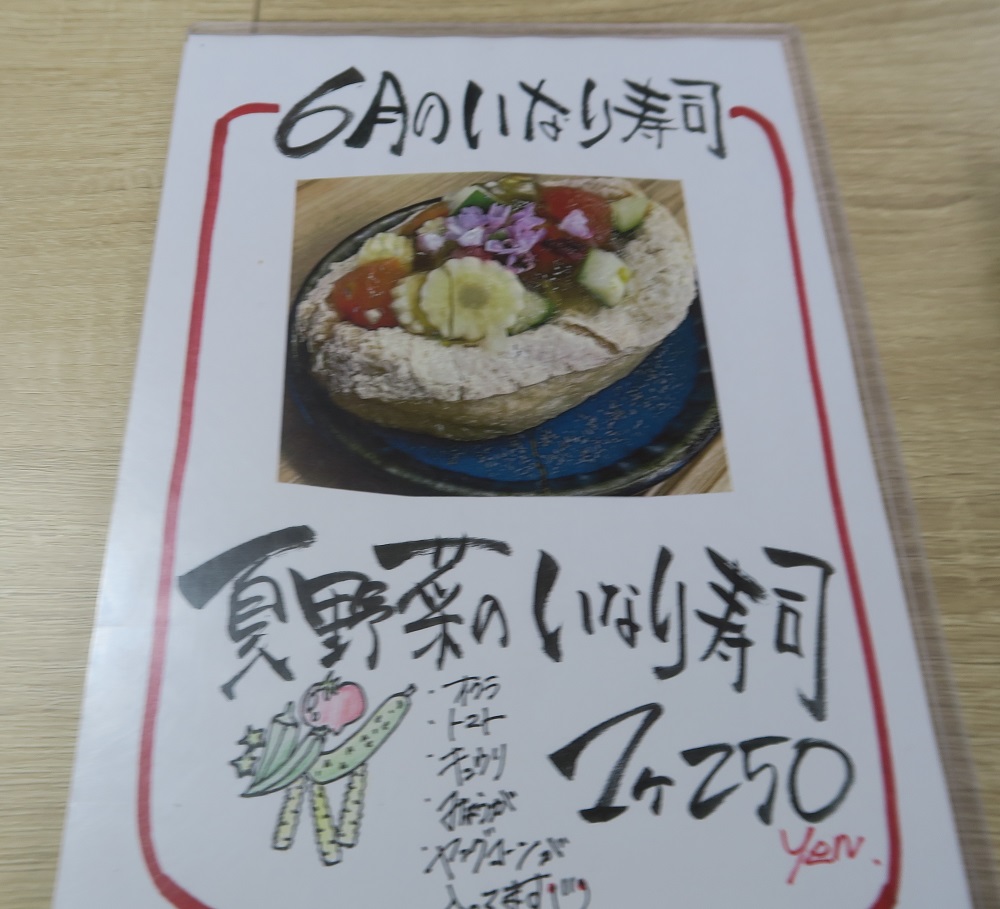 6月のいなり寿司
夏野菜のいなり寿司
・オクラ
・トマト
・キュウリ
・みょうが
・ヤングコーンが
入ってます
1ヶ250
Yen.